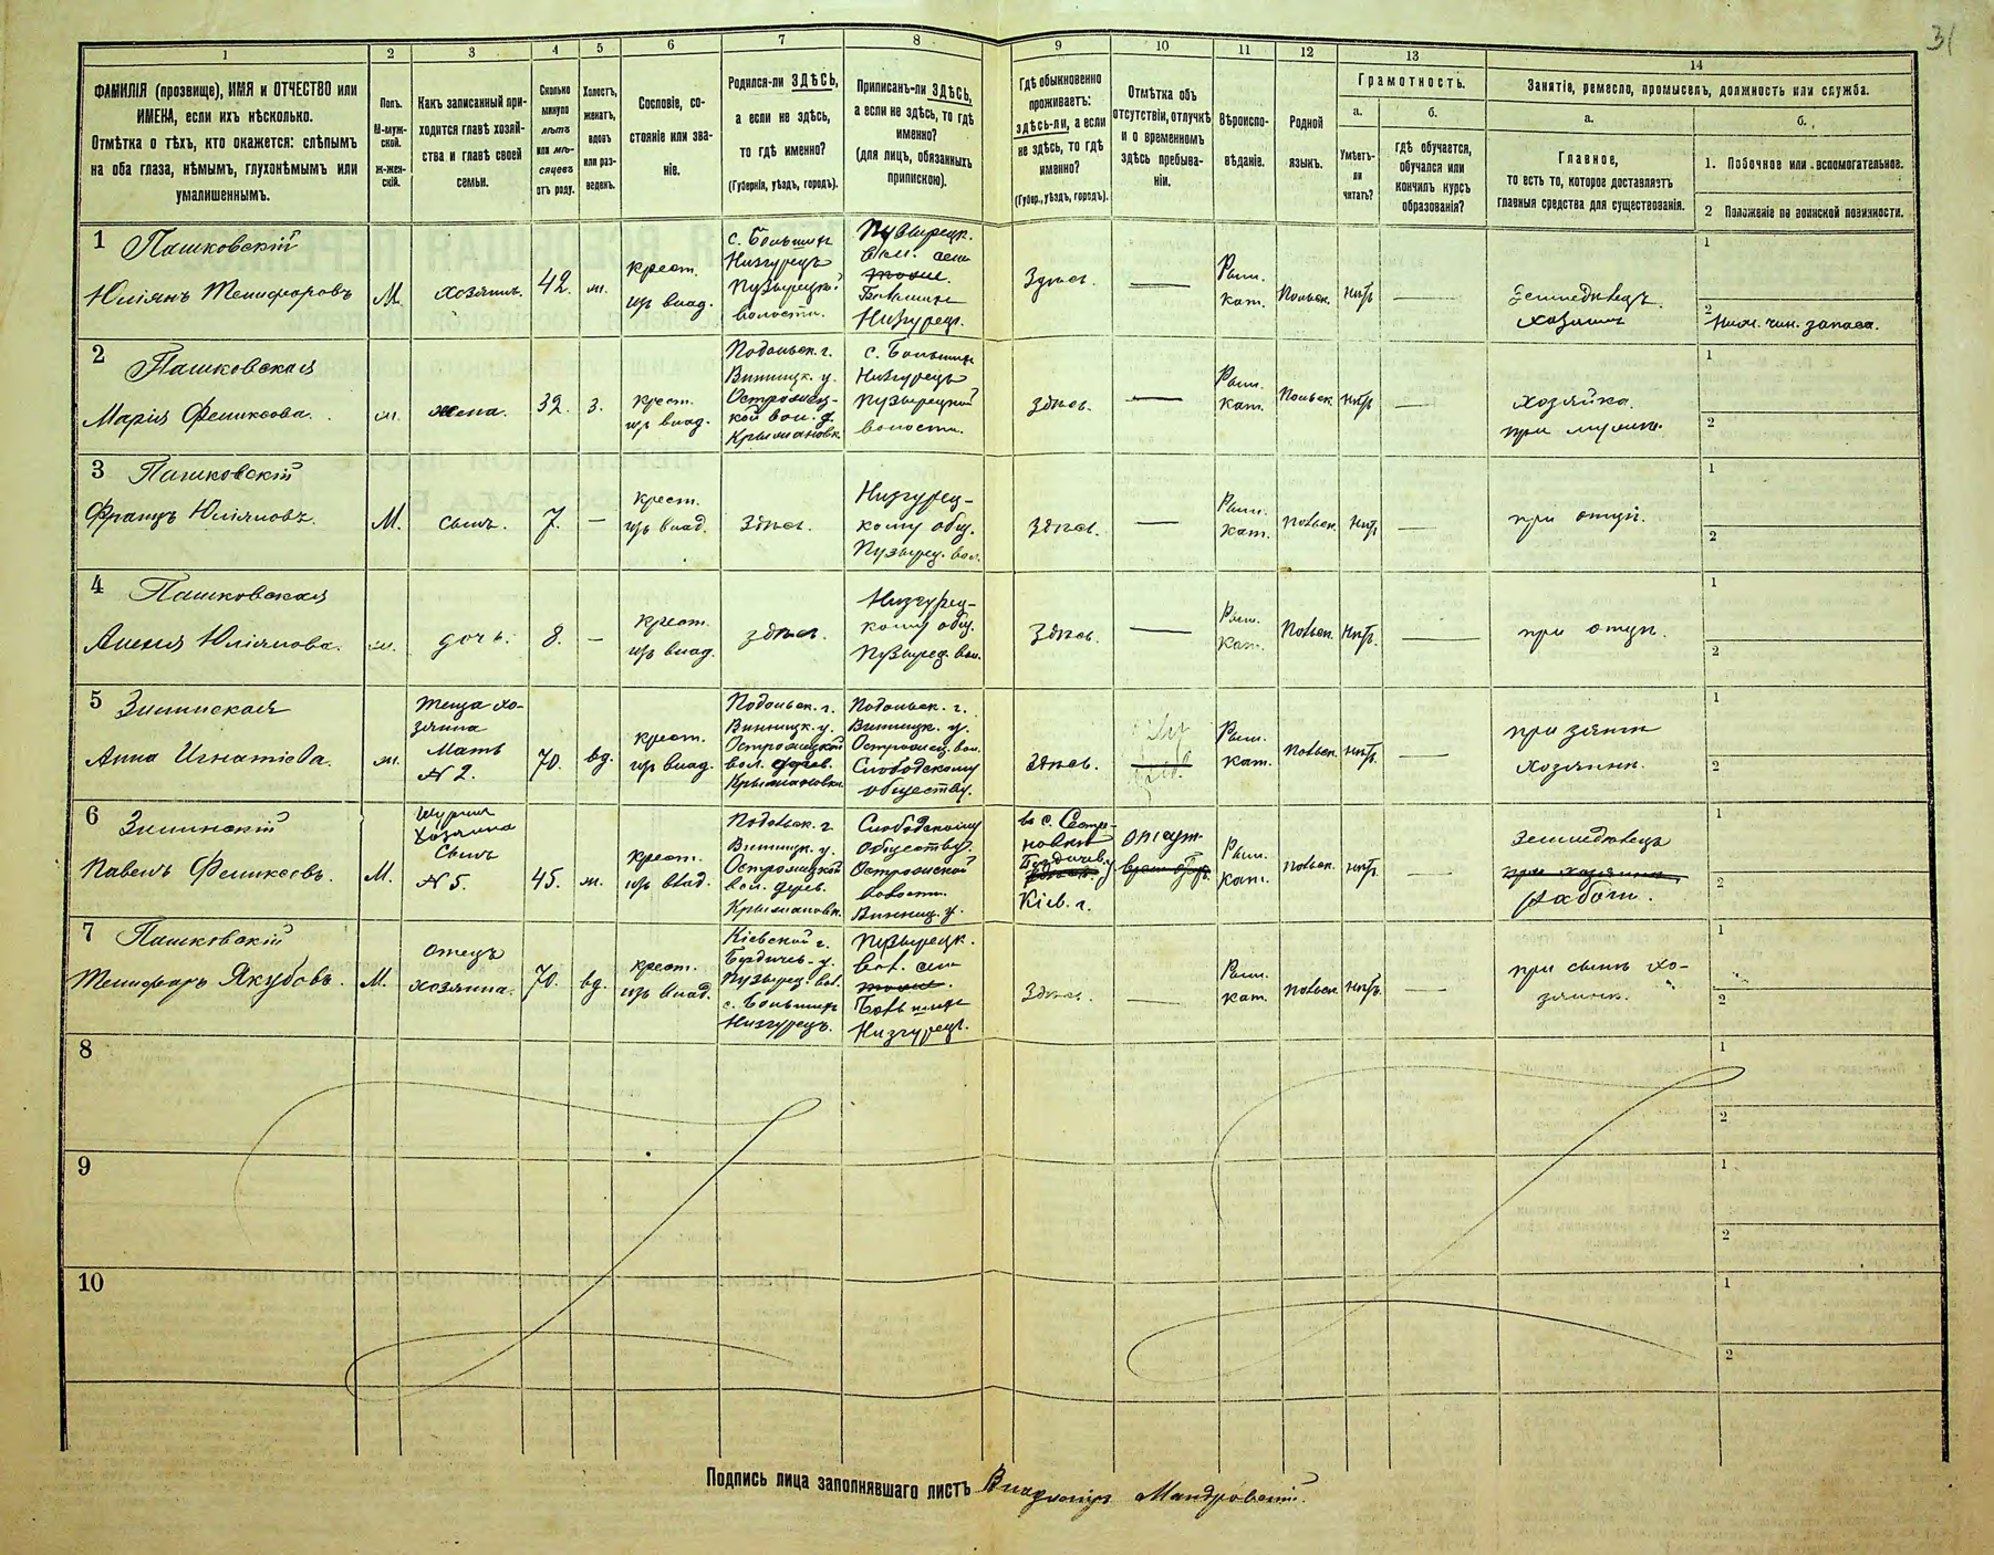 31
1
2
3
4
5
6
7
8
9
10
11
12
13
14
ФАМИЛІЯ (прозвище), ИМЯ и ОТЧЕСТВО или
ИМЕНА, если ихъ нѣсколько.
Отмѣтка о тѣхъ, кто окажется: слѣпымъ
на оба глаза, нѣмымъ, глухонѣмымъ или
умалишеннымъ.
Полъ.
М-муж-
ской.
Ж-жен-
скій.
Какъ записанный при-
ходится главѣ хозяй-
ства и главѣ своей
семьи.
Сколько
минуло
лѣтъ
или мѣ-
сяцевъ
отъ роду.
Холостъ,
женатъ,
вдовъ
или раз-
веденъ.
Сословіе, со-
стояніе или зва-
ніе.
Родился-ли ЗДѢСЬ,
а если не здѣсь,
то гдѣ именно?
(Губернія, уѣздъ, городъ).
Приписанъ-ли ЗДѢСЬ,
а если не здѣсь, то гдѣ
именно?
(для лицъ, обязанныхъ
припискою).
Гдѣ обыкновенно
проживаетъ:
здѣсь-ли, а если
не здѣсь, то гдѣ
именно?
(Губер., уѣздъ, городъ).
Отмѣтка объ
отсутствіи, отлучкѣ
и о временномъ
здѣсь пребыва-
ніи.
Вѣроиспо-
вѣданіе.
Родной
языкъ.
Грамотность.
а.
Умѣетъ-
ли
читать?
б.
гдѣ обучается,
обучался или
кончилъ курсъ
образованія?
Занятіе, ремесло, промыселъ, должность или служба.
а.
Главное,
то есть то, которое доставляетъ
главныя средства для существованія.
б.
1. Побочное или вспомогательное.
2 Положеніе по воинской повинности.
1 Пашковскій
Юліянъ Теишфоровъ
М.
хозяинъ.
42.
ж.
крест.
изъ влад.
с. Большихъ
Низгурецъ
Пузырецкой
волости.
Пузырецк.
вол. села
Большихъ
Низгурец.
Здѣсь.
—
Рим.
кат.
Польск.
нѣтъ
—
Земледѣлецъ.
хозяинъ
1
2
Ниж. чин. запаса.
2 Пашковская
Марія Феликсова.
ж.
жена.
32.
з.
крест.
изъ влад.
Подольск. г.
Винницк. у.
кой вол. д.
Крымановк.
с. Большихъ
Низгурецъ
Пузырецкой
волости.
Здѣсь.
—
Рим.
кат.
Польск
нѣтъ
—
хозяйка.
при мужѣ.
1
2
3 Пашковскій
Францъ Юліяновъ.
М.
сынъ.
7.
—
крест.
изъ влад.
Здѣсь.
Низгурец-
кому общ.
Пузырец. вол.
Здѣсь.
—
Рим.
кат.
польск.
нѣтъ
—
при отцѣ.
1
2
4 Пашковская
Юліянова.
ж.
дочь.
8.
—
крест.
изъ влад.
здѣсь.
Низгурец-
кому общ.
Пузырец. вол.
Здѣсь.
—
Рим.
кат.
Польск.
нѣтъ.
—
при отцѣ.
1
2
5 Зилинская
Анна Игнатіева.
ж.
теща хо-
зяина
Мать
№ 2.
70.
вд.
крест.
изъ влад.
Подольск. г.
Винницк. у.
вол. дерев.
Крымановки
Подольск. г.
Винницк. у.
Слободскому
обществу.
здѣсь.
Рим.
кат.
польск.
нѣтъ.
—
при зятѣ
хозяинѣ.
1
2
6 Зилинскій
Павелъ Феликсовъ.
М.
шуринъ
Хозяина
Сынъ
№ 5.
45.
ж.
крест.
изъ влад.
Подольск. г
Винницк. у.
вол. дерев.
Крымановк.
Слободскому
обществу.
волости.
Винниц. у.
Бердичев. у
Кіев. г.
отсут.
Рим.
кат.
польск.
нѣтъ.
—
Земледѣлецъ
при хозяинѣ.
1
2
7 Пашковскій
Якубовъ.
М.
отецъ
хозяина.
70.
вд.
крест.
изъ влад.
Кіевской г.
Бердичев. у.
Пузырец. вол.
с. Большихъ
Низгурецъ.
Пузырецк.
вол. села
Большихъ
Низгурец.
Здѣсь.
—
Рим.
кат.
польск.
нѣтъ.
—
при сынѣ хо-
зяинѣ.
1
2
8
1
2
9
1
2
10
1
2
Подпись лица заполнявшаго листъ Владиміръ Мандровскій.